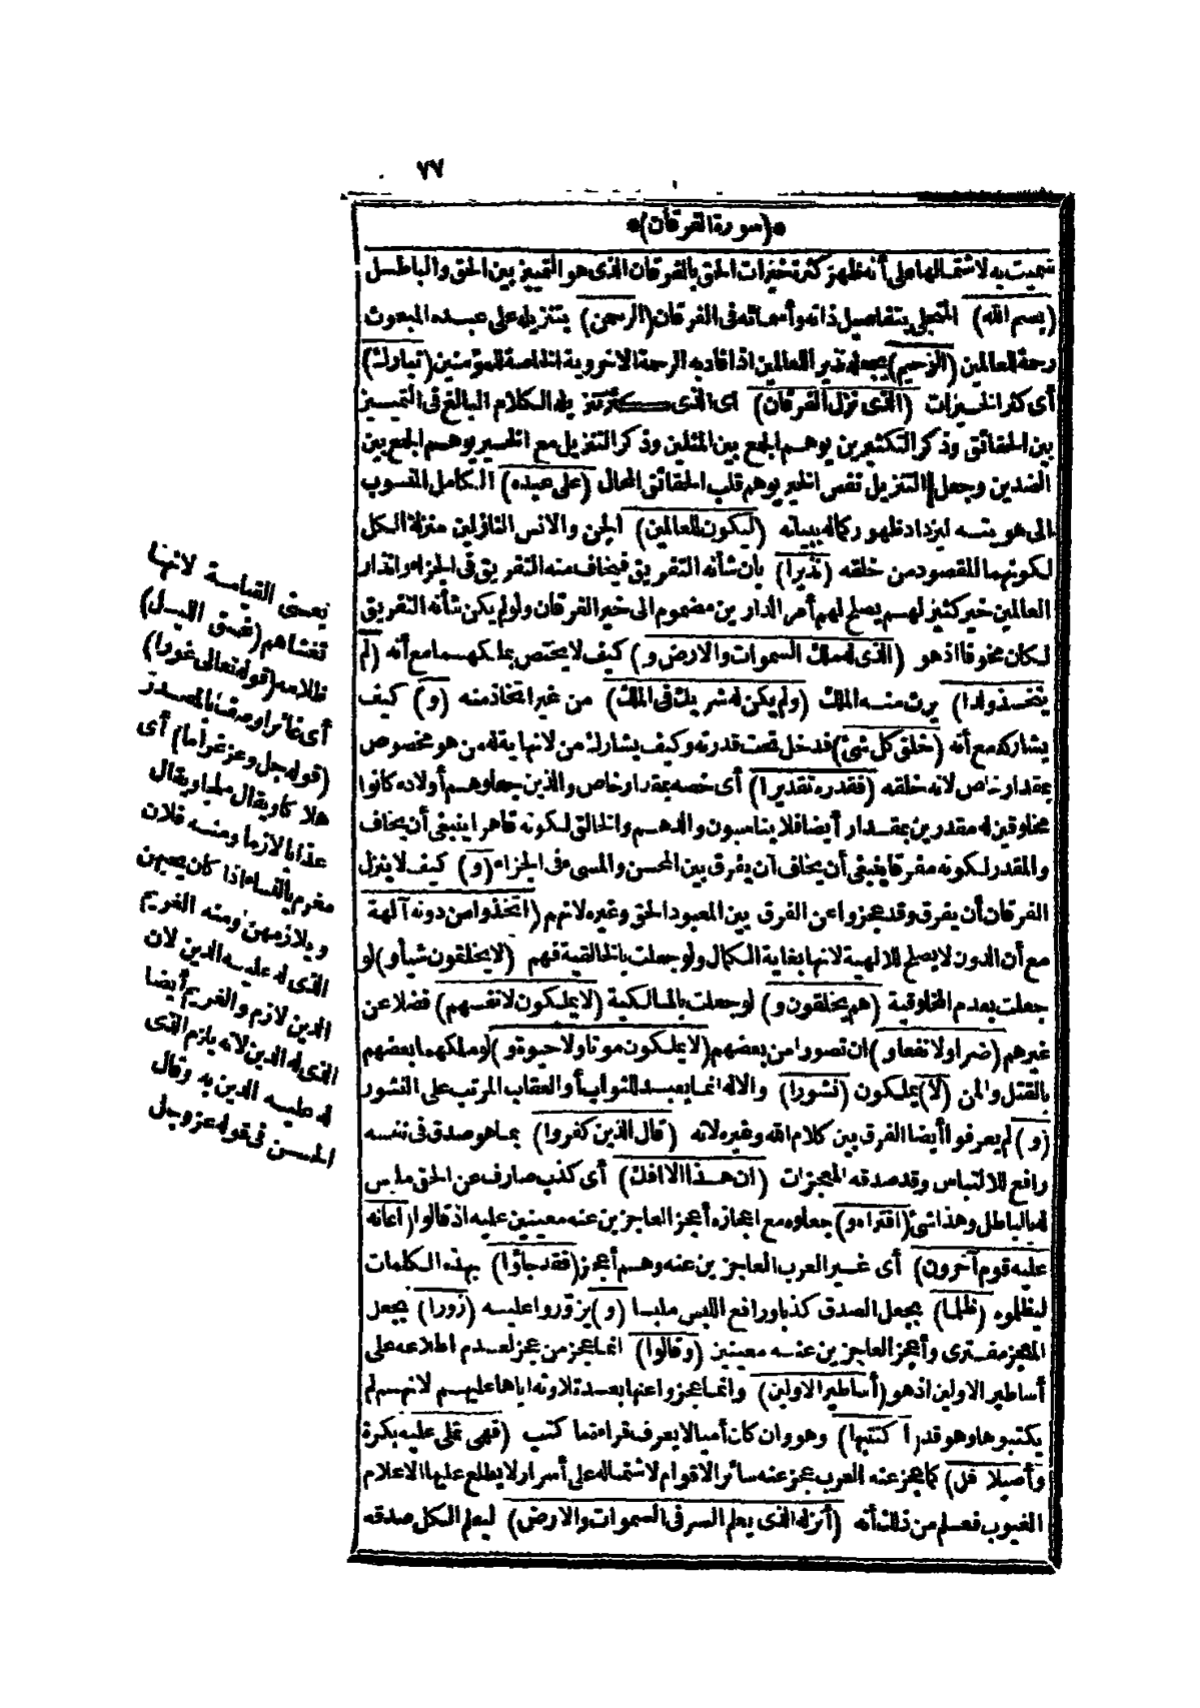 ٧٧
*(سورة الفرقان)*
سميت به لاشتمالها على أنه ظهر كثرة خيرات الحق بالفرقان الذى هو التمييز بين الحق والباطل
(بسم الله) المتجلى بتفاصيل ذاته وأسمائه فى الفرقان (الرحمن) بتنزيله على عبده المبعوث
رحمة للعالمين (الرحيم) بجعله نذير العالمين اذ افاد به الرحمة الاخروية الخاصة للمؤمنين (تبارك)
أى كثر الخيرات (الذى نزل الفرقان) اى الذى كثر تنزيله الكلام البالغ فى التمييز
بين الحقائق وذكر التكثيرين يوهم الجمع بين المثلين وذكر التنزيل مع الخير يوهم الجمع بين
الضدين وجعل التنزيل نفس الخير يوهم قلب الحقائق المحال (على عبده) الكامل المنسوب
الى هويته ليزداد ظهور كماله ببيانه (ليكون للعالمين) الجن والانس النازلين منزلة الكل
لكونهما المقصود من خلقه (نذيرا) بان شأنه التفريق فيخاف منه التفريق فى الجزاء وانذار
العالمين خير كثير لهم يصلح لهم أمر الدارين مضموم الى خير الفرقان ولو لم يكن شأنه التفريق
لكان مخوفا اذ هو (الذى له ملك السموات والارض و) كيف لا يختص بملكهما مع أنه (لم
يتخذ ولدا) يرث منه الملك (ولم يكن له شريك فى الملك) من غير اتخاذ منه (و) كيف
يشاركه مع أنه (خلق كل شئ) فدخل تحت قدرته وكيف يشارك من لانهاية له من هو مخصوص
بمقدار خاص لانه خلقه (فقدره تقديرا) أى خصه بمقدار خاص والذين جعلوهم أولاده كانوا
مخلوقين له مقدرين بمقدار أيضا فلا يناسبون والدهم والخالق لكونه قاهرا ينبغى أن يخاف
والمقدر لكونه مفرقا ينبغى أن يخاف أن يفرق بين المحسن والمسئ فى الجزاء (و) كيف لا ينزل
الفرقان أن يفرق وقد عجزوا عن الفرق بين المعبود الحق وغيره لانهم (اتخذوا من دونه آلهة
مع أن الدون لا يصلح للالهية لانها بغاية الكمال ولو جعلت بالخالقية فهم (لا يخلقون شيأ و) لو
جعلت بعدم المخلوقية (هم يخلقون و) لو جعلت بالمالكية (لا يملكون لانفسهم) فضلا عن
غيرهم (ضرا ولا نفعا و) ان تصورا من بعضهم (لا يملكون موتا ولا حيوة و) لو ملكهما بعضهم
بالقتل والمن (لا) يملكون (نشورا) والاله انما يعبد للثواب أو العقاب المرتب على النشور
(و) لم يعرفوا أيضا الفرق بين كلام الله وغيره لانه (قال الذين كفروا) بما هو صدق فى نفسه
رافع للالتباس وقد صدقه المعجزات (ان هذا الا افك) أى كذب صارف عن الحق ملبس
له بالباطل وهذا شئ (افتراه و) جعلوه مع اعجازه أعجز العاجزين عنه معينين عليه اذ قالوا (أعانه
عليه قوم آخرون) أى غير العرب العاجزين عنه وهم أعجز (فقد جاؤا) بهذه الكلمات
ليظلموه (ظلما) بجعل الصدق كذبا ورافع اللبس ملبسا (و) يزوروا عليه (زورا) بجعل
المعجز مفترى وأعجز العاجزين عنه معينين (وقالوا) انما عجز من عجز لعدم اطلاعه على
أساطير الاولين اذ هو (أساطير الاولين) وانما عجزوا عنها بعد تلاوته اياها عليهم لانهم لم
يكتبوها وهو قد (اكتتبها) وهو وان كان أميا لا يعرف قراءة ما كتب (فهى تملى عليه بكرة
وأصيلا قل) كما عجز عنه العرب عجز عنه سائر الاقوام لاشتماله على أسرار لا يطلع عليها الاعلام
الغيوب فعلم من ذلك أنه (أنزله الذى يعلم السر فى السموات والارض) ليعلم الكل صدقه
يعنى القيامة لانها
تغشاهم (غسق الليل)
ظلامه (قوله تعالى غورا)
أى غائرا وصف بالمصدر
(قوله جل وعز غراما) أى
هلاكا ويقال ملحا ويقال
عذابا لازما ومنه فلان
مغرم بالنساء اذا كان يحبهن
ويلازمهن ومنه الغريم
الذى له عليه الدين لان
الدين لازم والغريم أيضا
الذى له الدين لانه يلزم الذى
له عليه الدين به وقال
الحسن فى قوله عز وجل